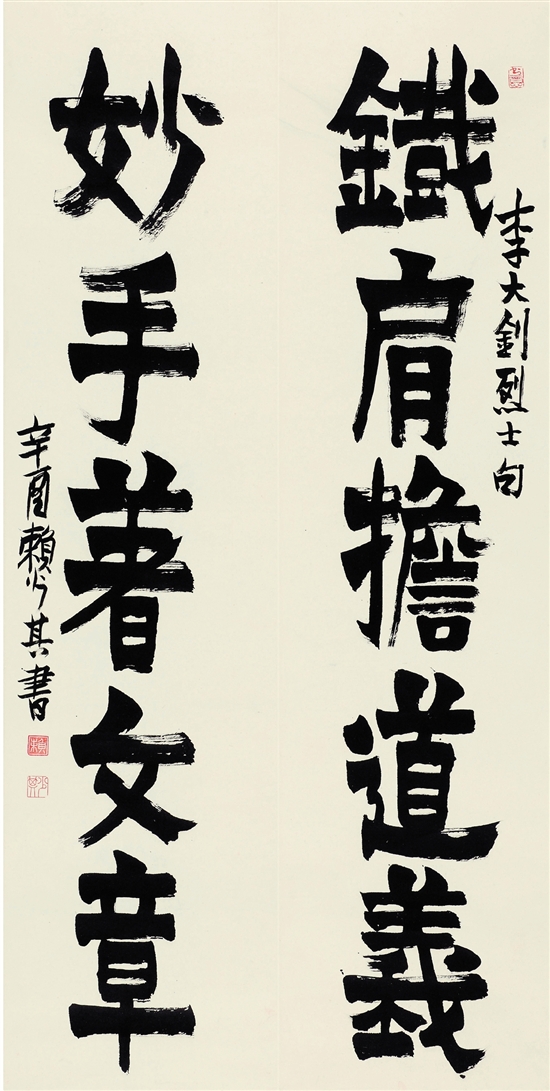 鐵肩擔道義
李大釗烈士句
妙手著文章
辛酉賴少其書